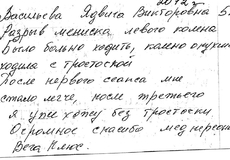 2012
Васильева Ядвига Викторовна 5.
Разрыв мениска левого колена
Было больно ходить, колено опухло
ходила с тросточкой
После первого сеанса мне
стало легче, после третьего
я уже хожу без тросточки
Огромное спасибо медперсон
Вега Плюс.